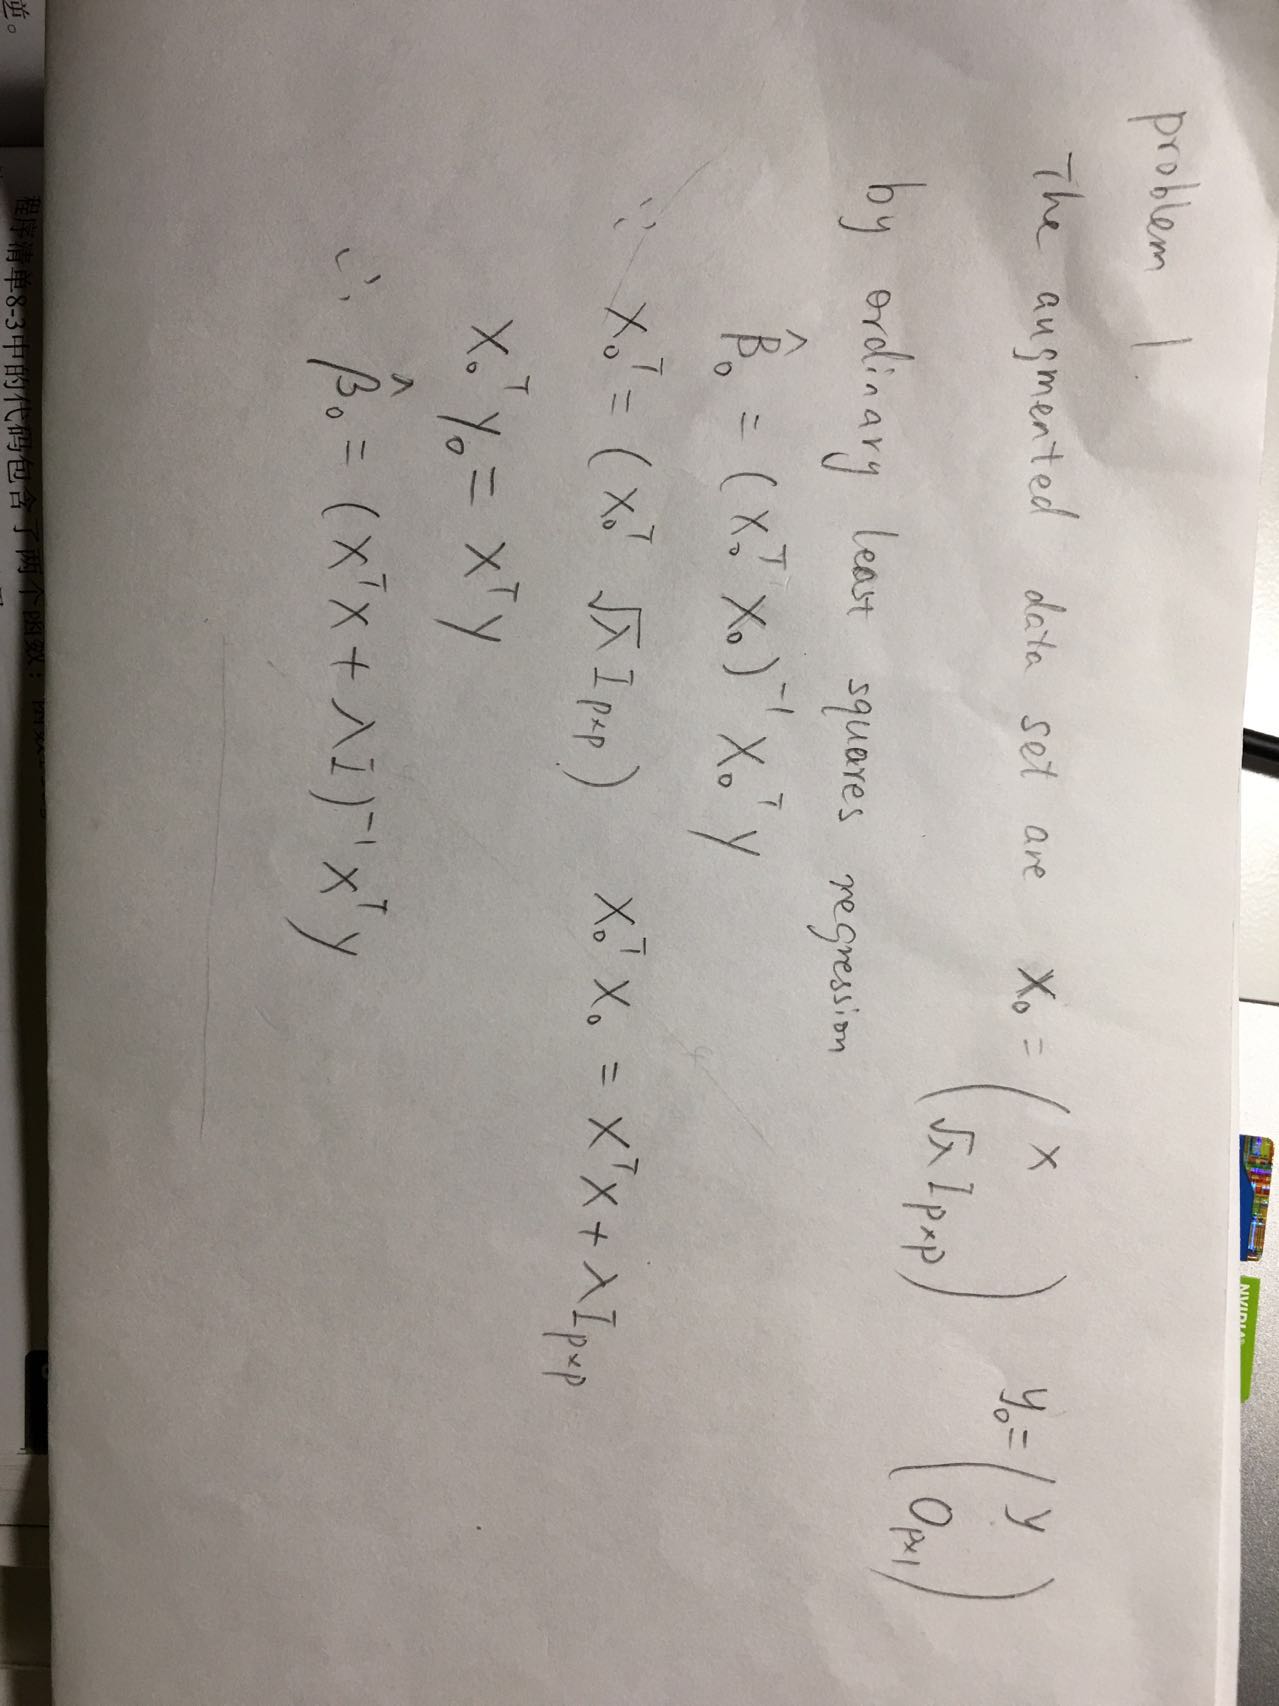 problem 1
The augmented data set are X₀ = ( X √λ I p×p ) y₀ = ( y 0 p×1 )
by ordinary least squares regression
β̂₀ = (X₀ᵀ X₀)⁻¹ X₀ᵀ y
∵ X₀ᵀ = (X₀ᵀ √λ I p×p) X₀ᵀ X₀ = XᵀX + λ I p×p
X₀ᵀ y₀ = Xᵀ y
∴ β̂₀ = (XᵀX + λI)⁻¹ Xᵀ y
程序清单8-3中的代码包含了两个函数:
逆。
NVIDIA